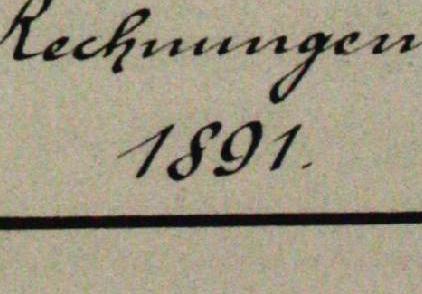 Rechnungen
1891.